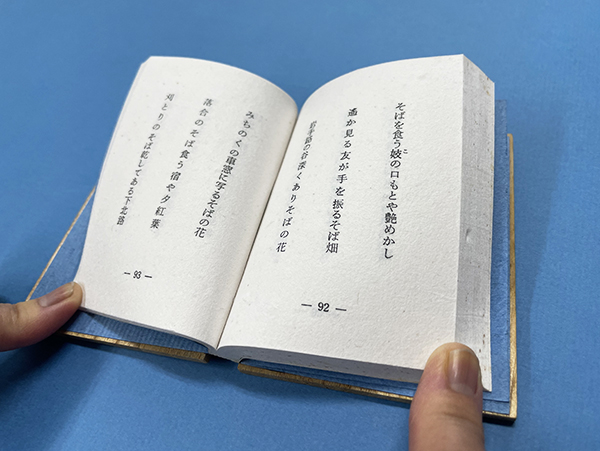 そばを食う妓の口もとや艶めかし
遥か見る友が手を振るそば畑
岩手路の谷深くありそばの花
— 92 —
みちのくの車窓に写るそばの花
落合のそば食う宿や夕紅葉
刈とりのそば乾してある下北路
— 93 —